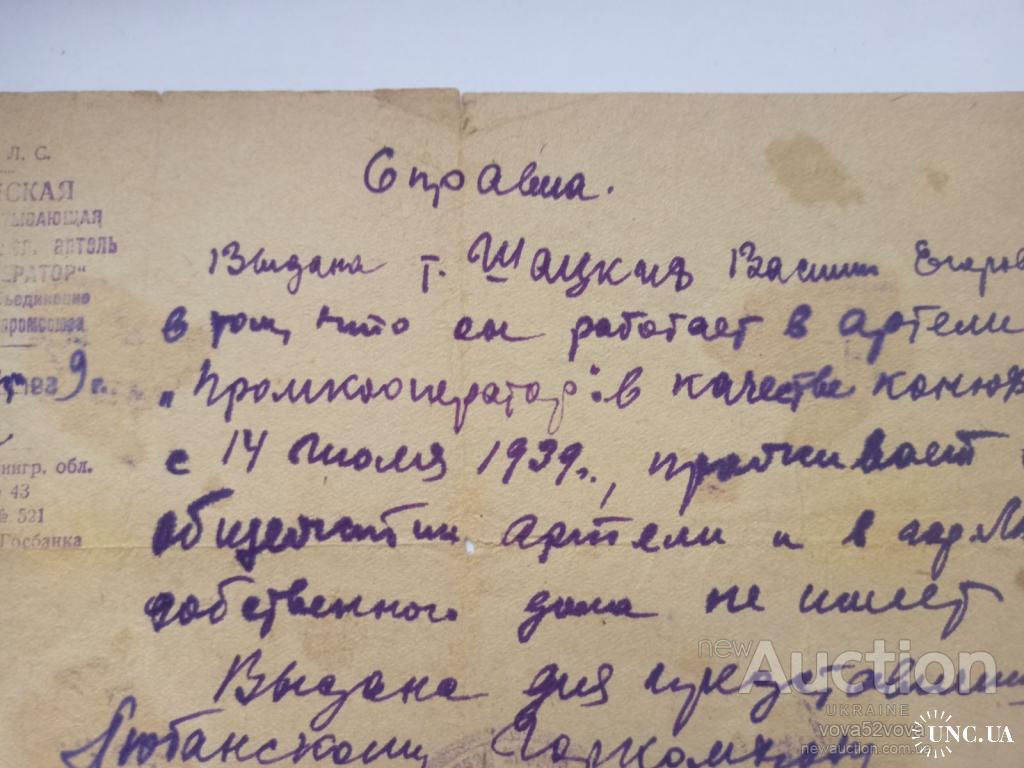 Л. С.
СКАЯ
ТЫВАЮЩАЯ
артель
ЕРАТОР"
ъединено
промсоюза
9 г.
нингр. обл.
43
№ 521
Госбанка
Справка.
Выдана т. Шацкия Васили Егоров
в том, что он работает в артели
„Промкооператор" в качестве конюх
с 14 июля 1939г., проживает
общежитии артели и в гор. Лю
собственного дома не имеет
Выдана для представлени
Любанскому Горкомхозу
newAuction
UKRAINE
vova52vova
newauction.com.ua
UNC.UA